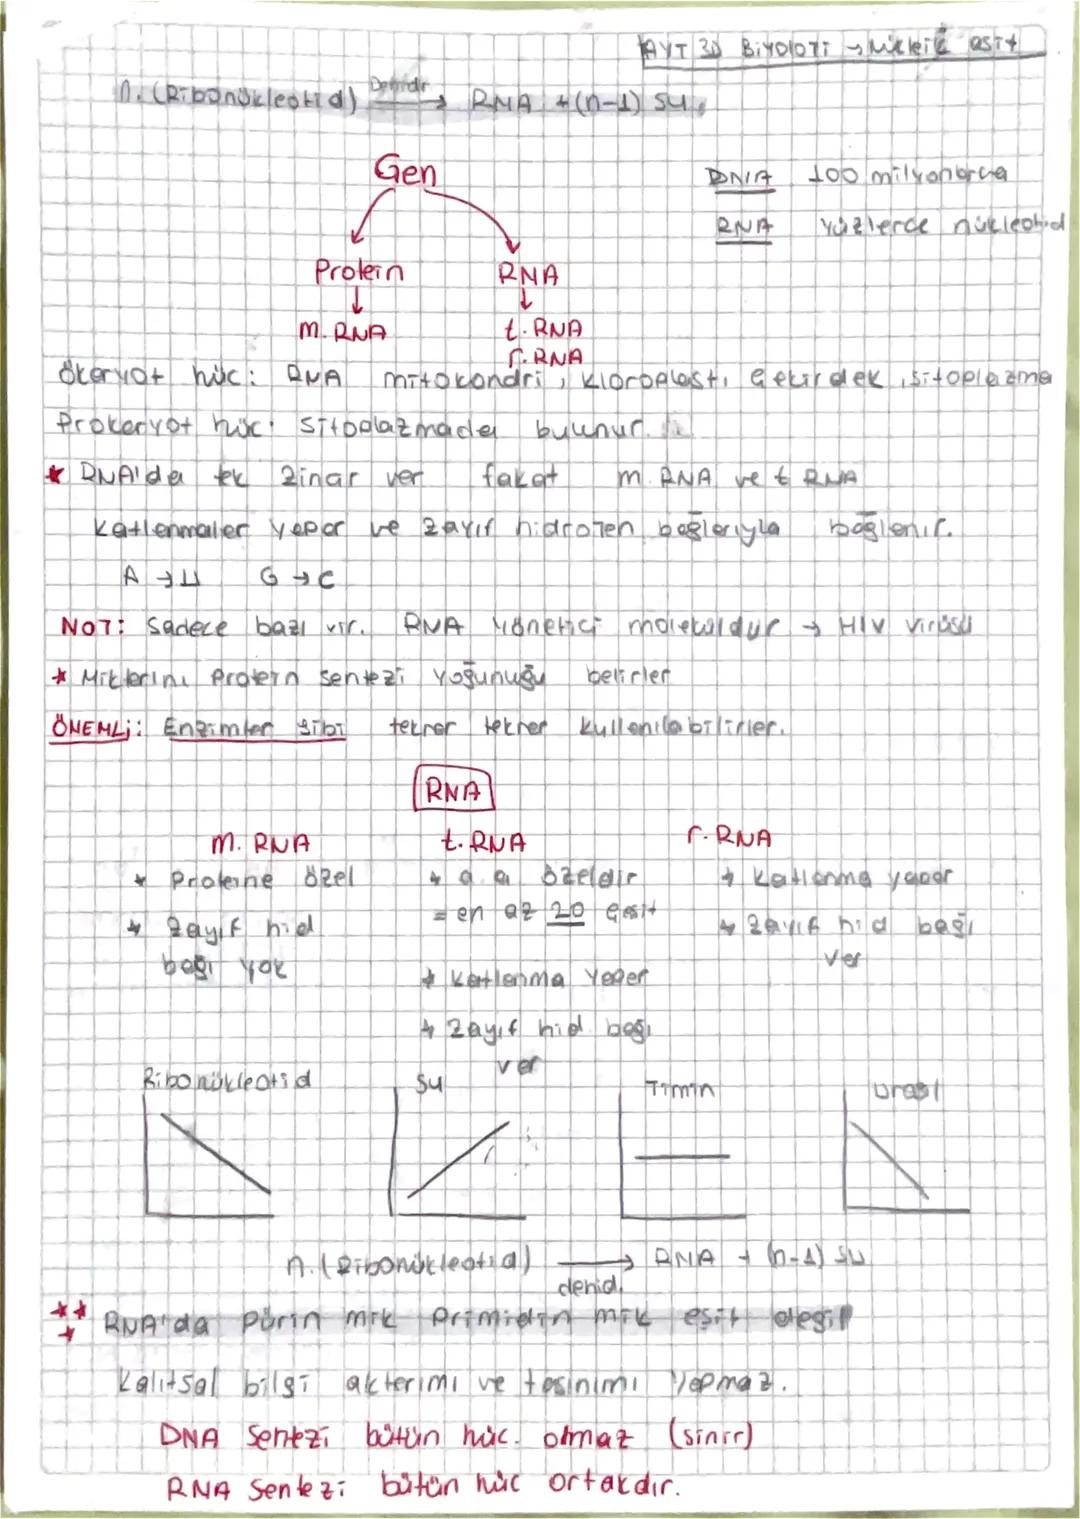 AYT 3D BİYOLOJİ → Nükleik asit
n. (Ribonükleotid) Dehidr → RNA + (n-1) su
Gen
DNA 100 milyonlarca
RNA yüzlerce nükleotid
Protein RNA
m. RNA t. RNA
r. RNA
Ökaryot hüc: RNA mitokondri, kloroplast, çekirdek, sitoplazma
Prokaryot hüc: sitoplazmada bulunur.
* RNA'da tek zincir var fakat m. RNA ve t RNA
katlanmalar yapar ve zayıf hidrojen bağlarıyla bağlanır.
A → U G → C
NOT: Sadece bazı vir. RNA yönetici moleküldür → HIV virüsü
* Miktarını protein sentezi yoğunuğu belirler
ÖNEMLİ: Enzimler gibi tekrar tekrar kullanılabilirler.
RNA
m. RNA t. RNA r. RNA
* Proteine özel * a.a özeldir * Katlanma yapar
= en az 20 çeşit
* Zayıf hid bağı yok * Zayıf hid bağı var
* Katlanma yapar
* Zayıf hid bağı var
Ribonükleotid Su Timin Urasil
n. (Ribonükleotid) → denid. RNA + (n-1) su
*** RNA'da pürin mik primidin mik eşit değil
Kalıtsal bilgi aktarımı ve taşınımı yapmaz.
DNA Sentezi bütün hüc. olmaz (sinir)
RNA Sentezi bütün hüc ortakdır.